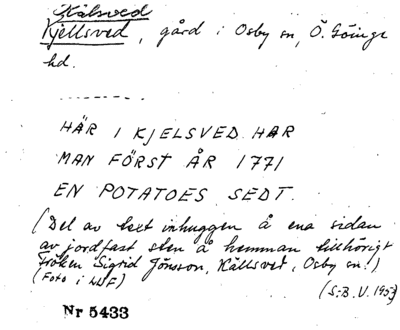 Källsved
Kjellsved, gård i Osby sn, Ö. Göinge
hd.
HÄR I KJELSVED HAR
MAN FÖRST ÅR 1771
EN POTATOES SEDT.
(Del av text inhuggen å ena sidan
av jordfast sten å hemman tillhörigt
Fröken Sigrid Jönsson, Källsved, Osby sn.)
(Foto i LUF)
(S.B.V. 195
Nr 5433